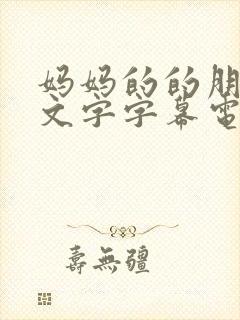 妈妈的的朋
文字字幕电
壽無疆